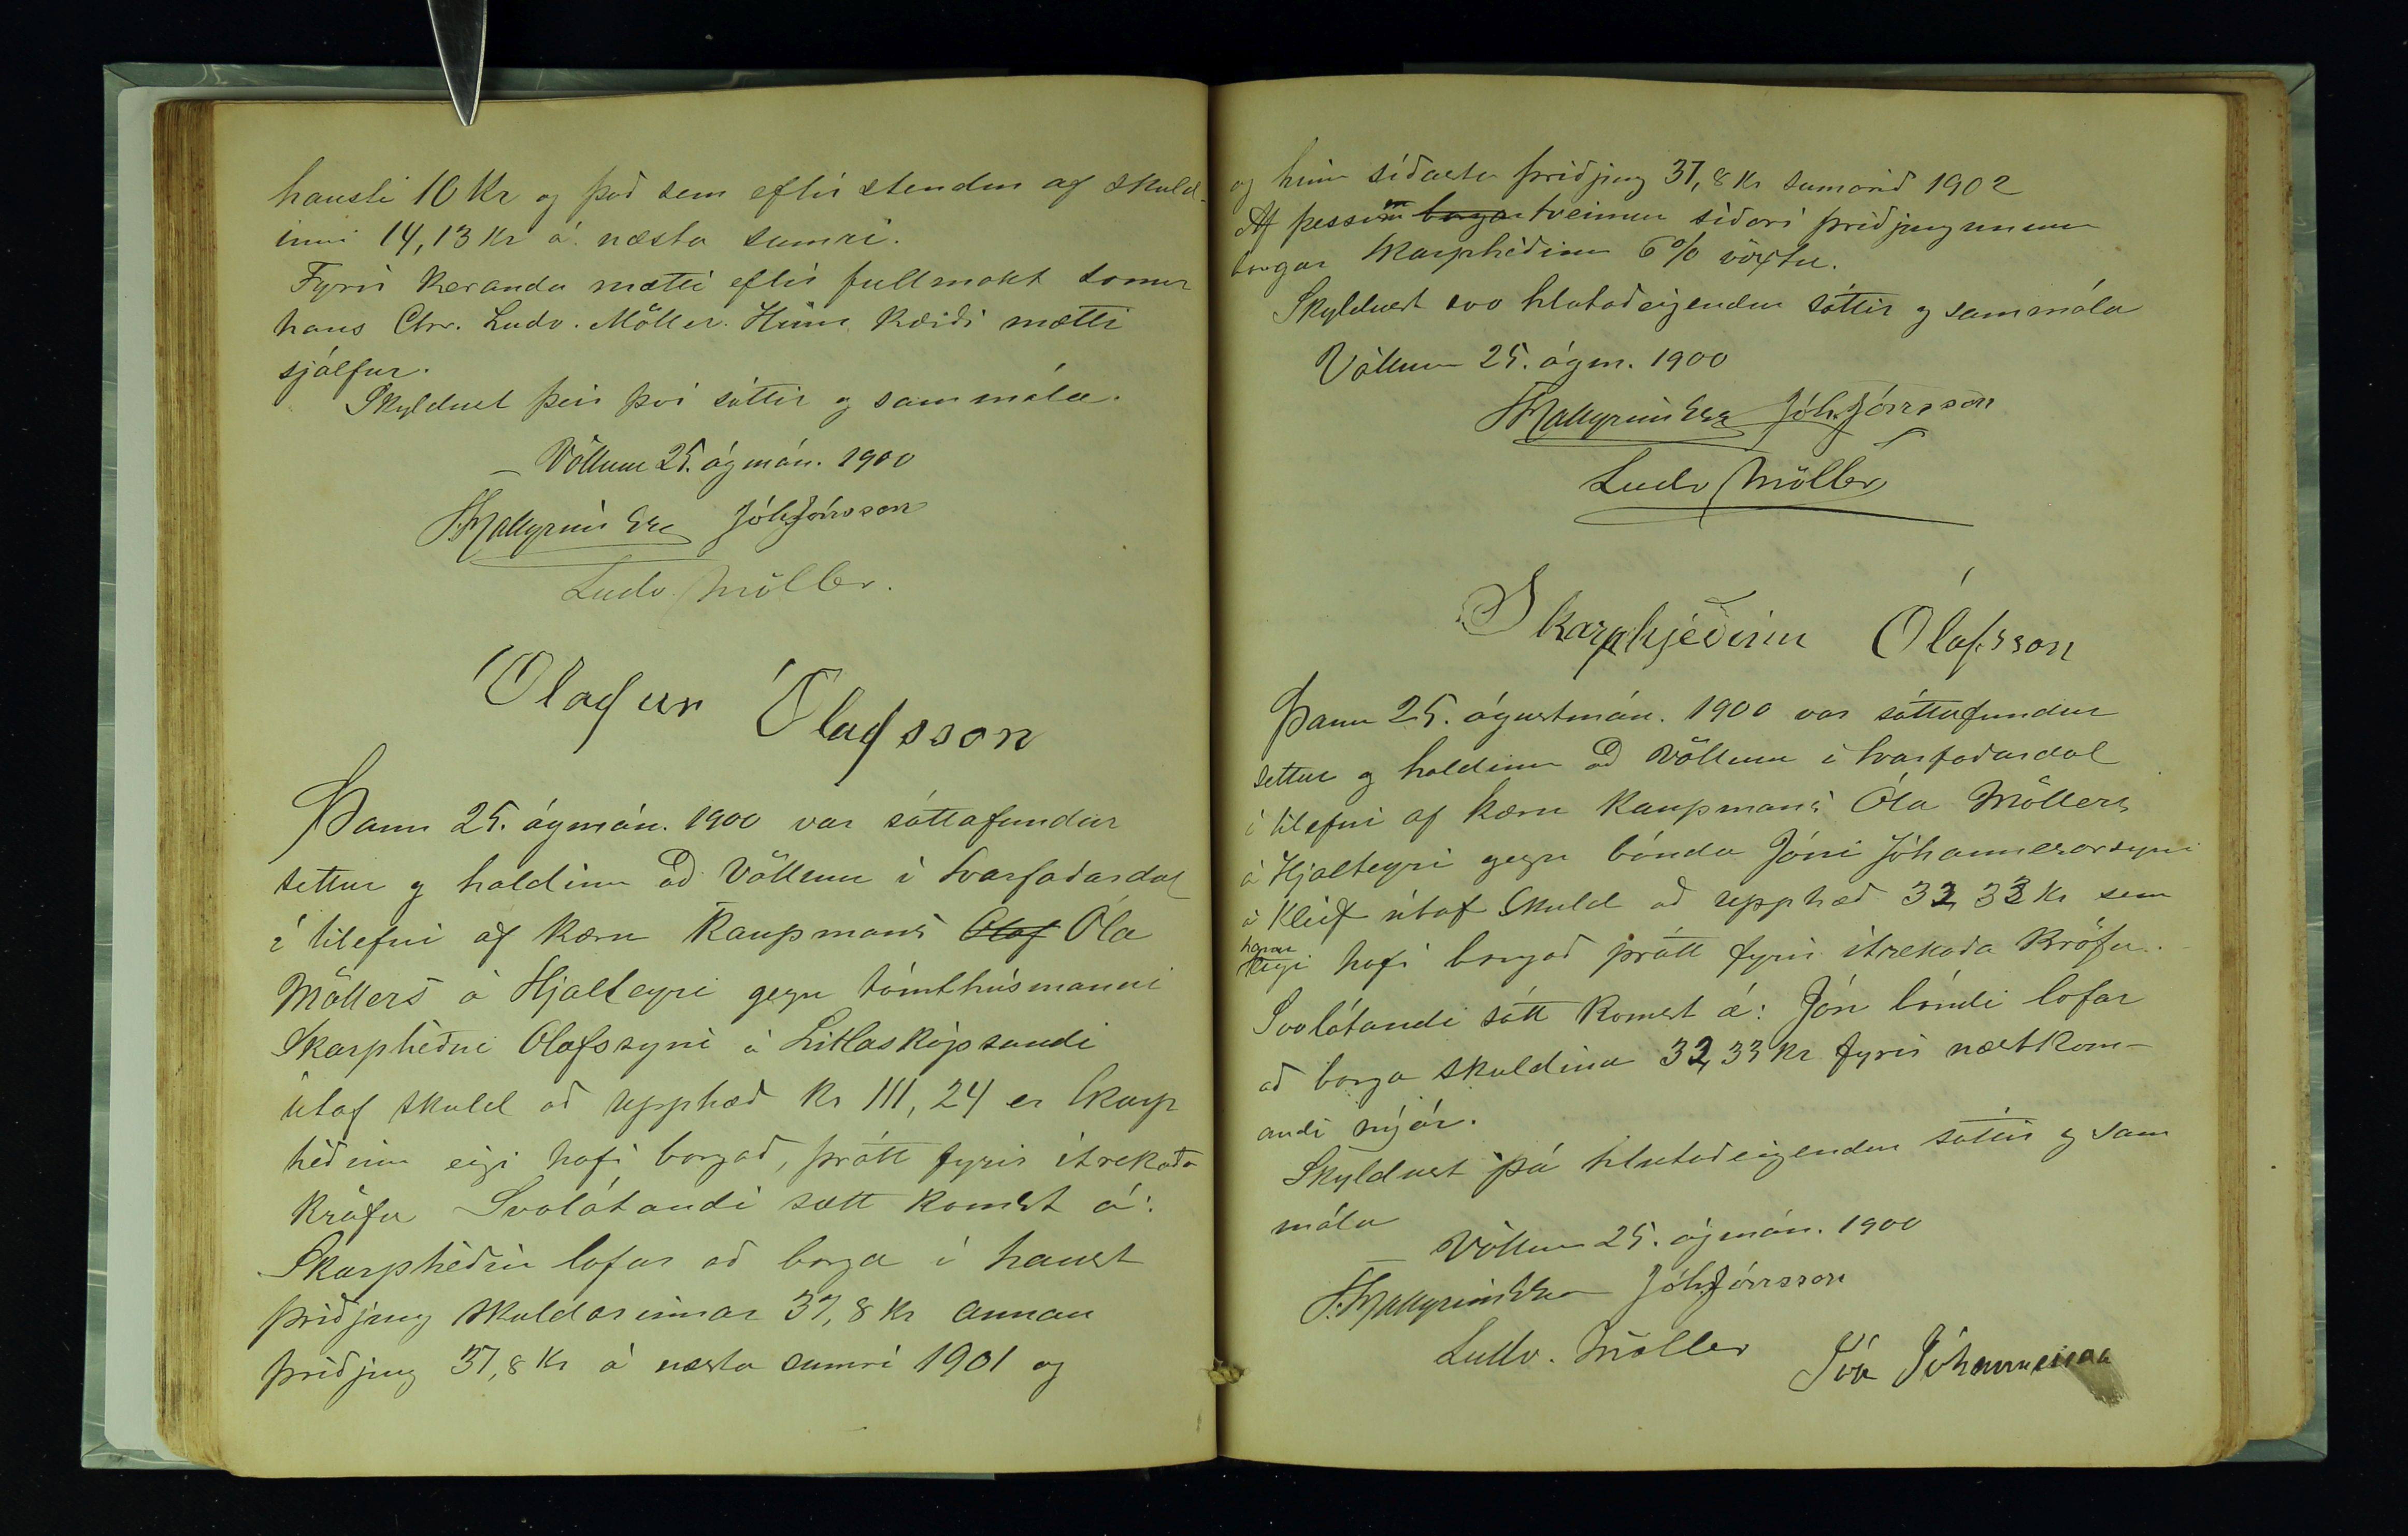 hausti 10 Kr og það sem eftir stendur af skuld-
inni 14,13 Kr á næsta sumri.
Fyrir kæranda mætti eftir fullmakt sonur
hans Chr. Ludv. Möller. Hinn kærði mætti
sjálfur.
Skyldust þeir því sáttir og sammála.
Völlum 25. ágmán. 1900
Jóh Jónsson
Ludv. Möller.
Ólafur Ólafsson
Þann 25. ágmán. 1900 var sáttafundur
settur og haldinn að Völlum í Svarfaðardal
í tilefni af kæru kaupmanns Olaf Óla
Möllers á Hjalteyri gegn tómthúsmanni
Skarphéðni Olafssyni á Litlaskógssandi
útaf skuld að upphæð kr 111,24 er Skarp
héðinn eigi hafi borgað, þrátt fyrir ítrekaða
kröfu Svolátandi sætt komst á:
Skarphéðin lofar að borga í haust
þriðjung skuldarinnar 37,8 kr annan
þriðjung 37,8 Kr á næsta sumri 1901 og
og hinn síðasta þriðjung 37,8 Kr sumarið 1902
Af þessum borgar tveimur síðari þriðjungunum
borgar Skarphéðinn 6% vöxtu.
Skyldust svo hlutaðeigendur sáttir og sammála
Völlum 25. ágm. 1900
Jóh. Jónsson
Ludv Möller
Skarphjeðinn Ólafsson
Þann 25. ágústmán. 1900 var sáttafundur
settur og haldinn að Völlum í Svarfaðardal
í tilefni af kæru kaupmanns Óla Möllers
á Hjalteyri gegn bónda Jóni Jóhannessyni
á Klúf útaf skuld að upphæð 32,33 Kr sem
hann
eigi hafi borgað þrátt fyrir ítrekaða kröfu.
Svolátandi sátt komst á: Jón bóndi lofar
að borga skuldina 32,33 Kr fyrir næstkom-
andi nýár.
Skyldust þá hlutaðeigendur sáttir og sam
mála
Völlum 25. ágmán. 1900
Jóh Jónsson
Ludv. Möller Jón